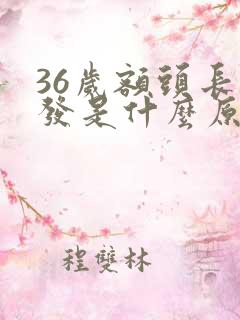 36歲額頭長
發是什麼原
程雙林